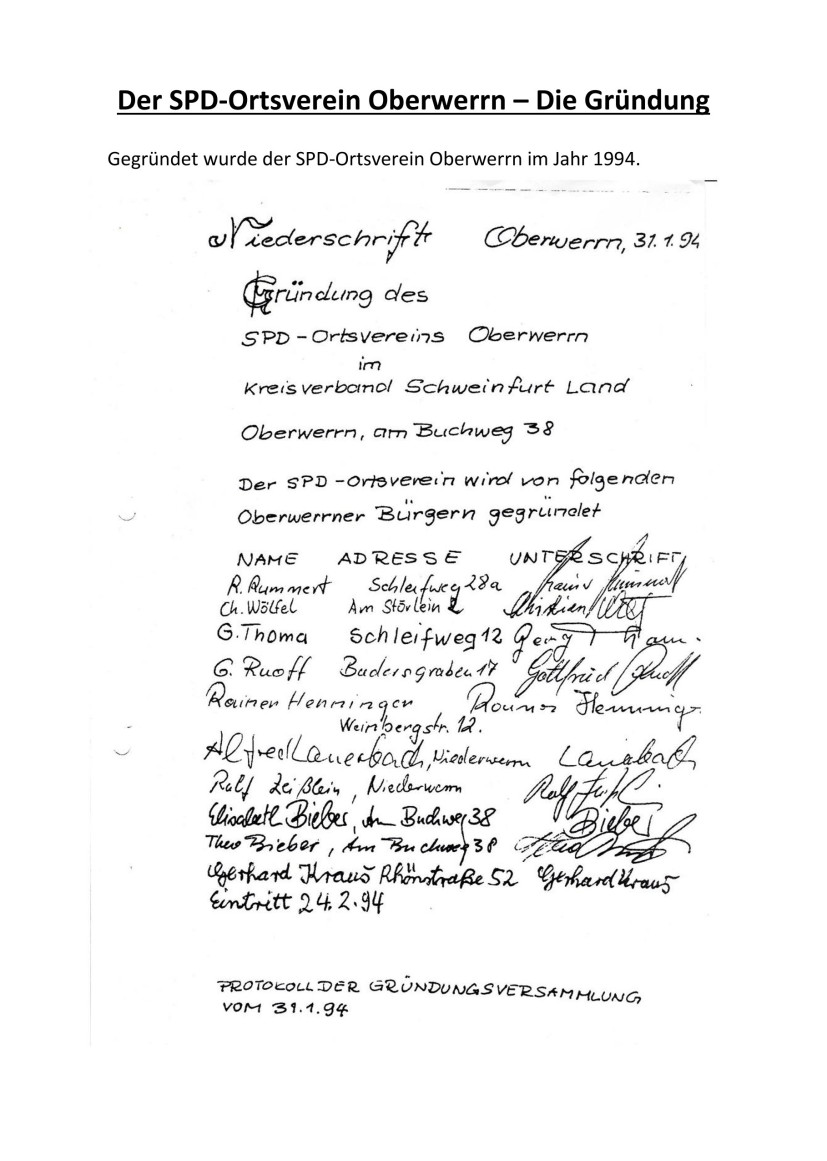 Der SPD-Ortsverein Oberwerrn – Die Gründung
Gegründet wurde der SPD-Ortsverein Oberwerrn im Jahr 1994.
Niederschrift Oberwerrn, 31.1.94
Gründung des
SPD-Ortsvereins Oberwerrn
im
Kreisverband Schweinfurt Land
Oberwerrn, am Buchweg 38
Der SPD-Ortsverein wird von folgenden
Oberwerrner Bürgern gegründet
NAME ADRESSE UNTERSCHRIFT
R. Rummert Schleifweg 28a
Ch. Wölfel Am Störlein 2 Christian
G. Thoma Schleifweg 12 Georg
G. Ruoff Badersgraben 17 Gottfried Ruoff
Rainer Henninger, Rainer Henninger
Weinbergstr. 12.
Alfred Lauerbach, Niederwerrn Lauerbach
Ralf Zeißlein, Niederwerrn Ralf
Elisabeth Bieber, Am Buchweg 38 Bieber
Theo Bieber, Am Buchweg 38 Theo
Gerhard Kraus Rhönstraße 52 Gerhard Kraus
Eintritt 24.2.94
PROTOKOLL DER GRÜNDUNGSVERSAMMLUNG
VOM 31.1.94